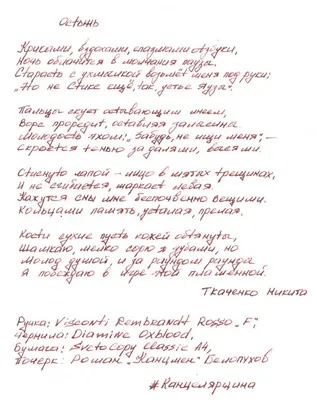 Остынь
Криками, вздохами, спазмами азбуки,
Ночь облачится в молчания паузы.
Старость с ухмылкой возьмёт меня под руку:
„Но не Стикс ещё, так, устье Яузы".
Пальцы скует остывающим инеем,
Ворс проредит, оставляя залысины.
Молодость ухом: „Забудь, не ищи меня", –
Скроется тенью за далями, высями.
Стиснуто лапой – лицо в мятых трещинах,
И не сгибается, шаркает левая.
Кажутся сны мне беспочвенно вещими.
Кольцами память, усталая, прелая.
Кости сухие пусть кожей обтянуты,
Шамкаю, мелко сорю я зубами, но
Молод душой, и за раундом раунды
Я побеждаю в игре той пламенной.
Ткаченко Никита
Ручка: Visconti Rembrandt Rosso „F",
Чернила: Diamine Oxblood,
Бумага: SvetoCopy Classic A4,
Почерк: Роман „Канцмен" Белопухов
#Канцелярщина